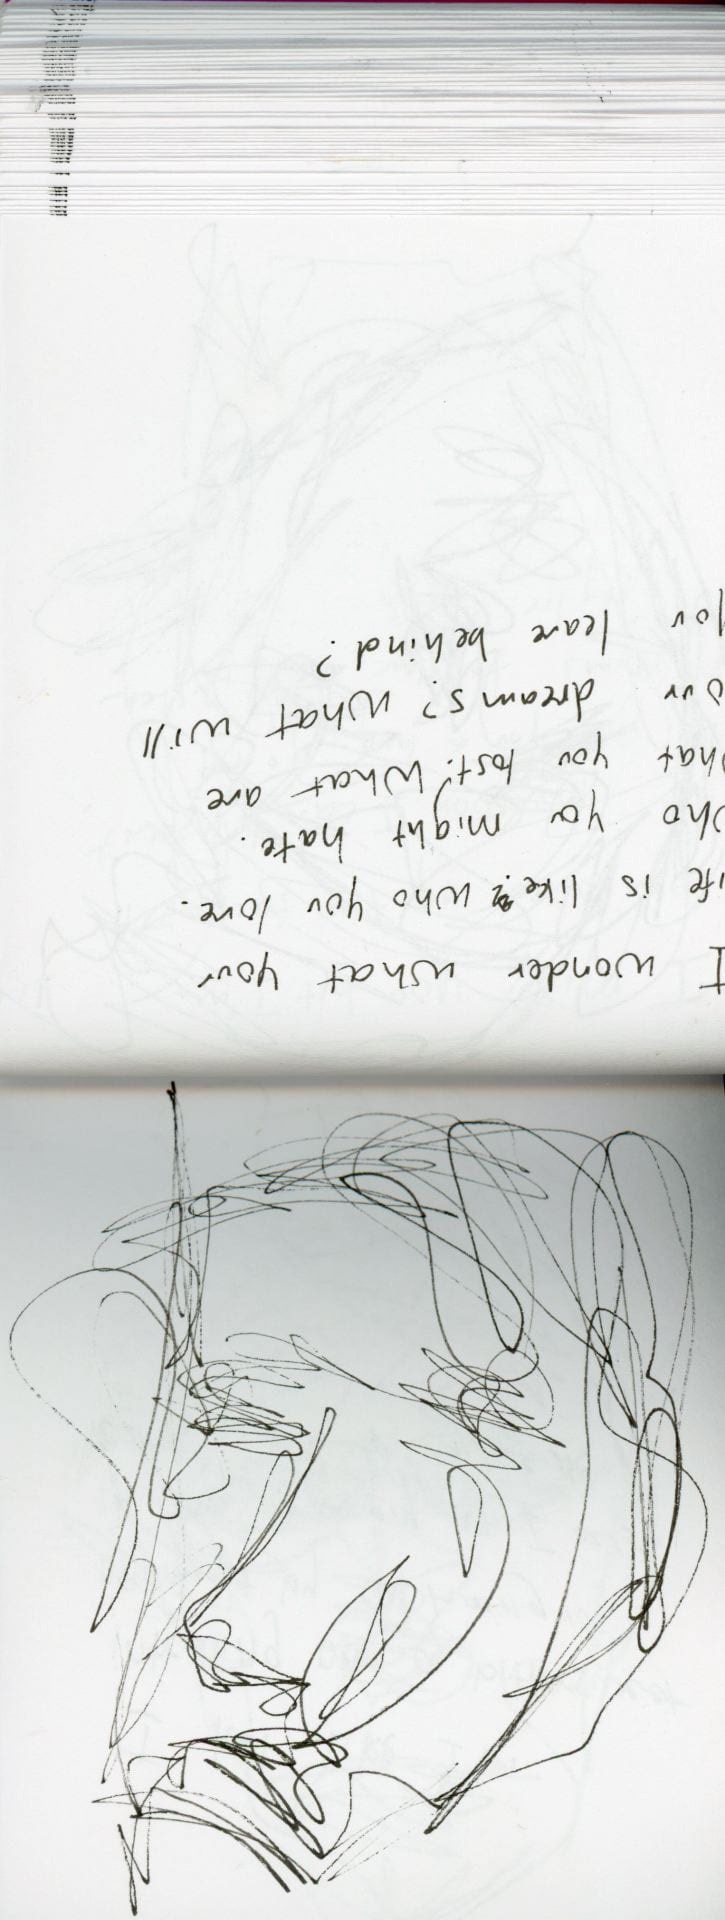 I wonder what your
ife is like? who you love.
who you might hate.
what you lost? What are
our dreams? What will
you leave behind?